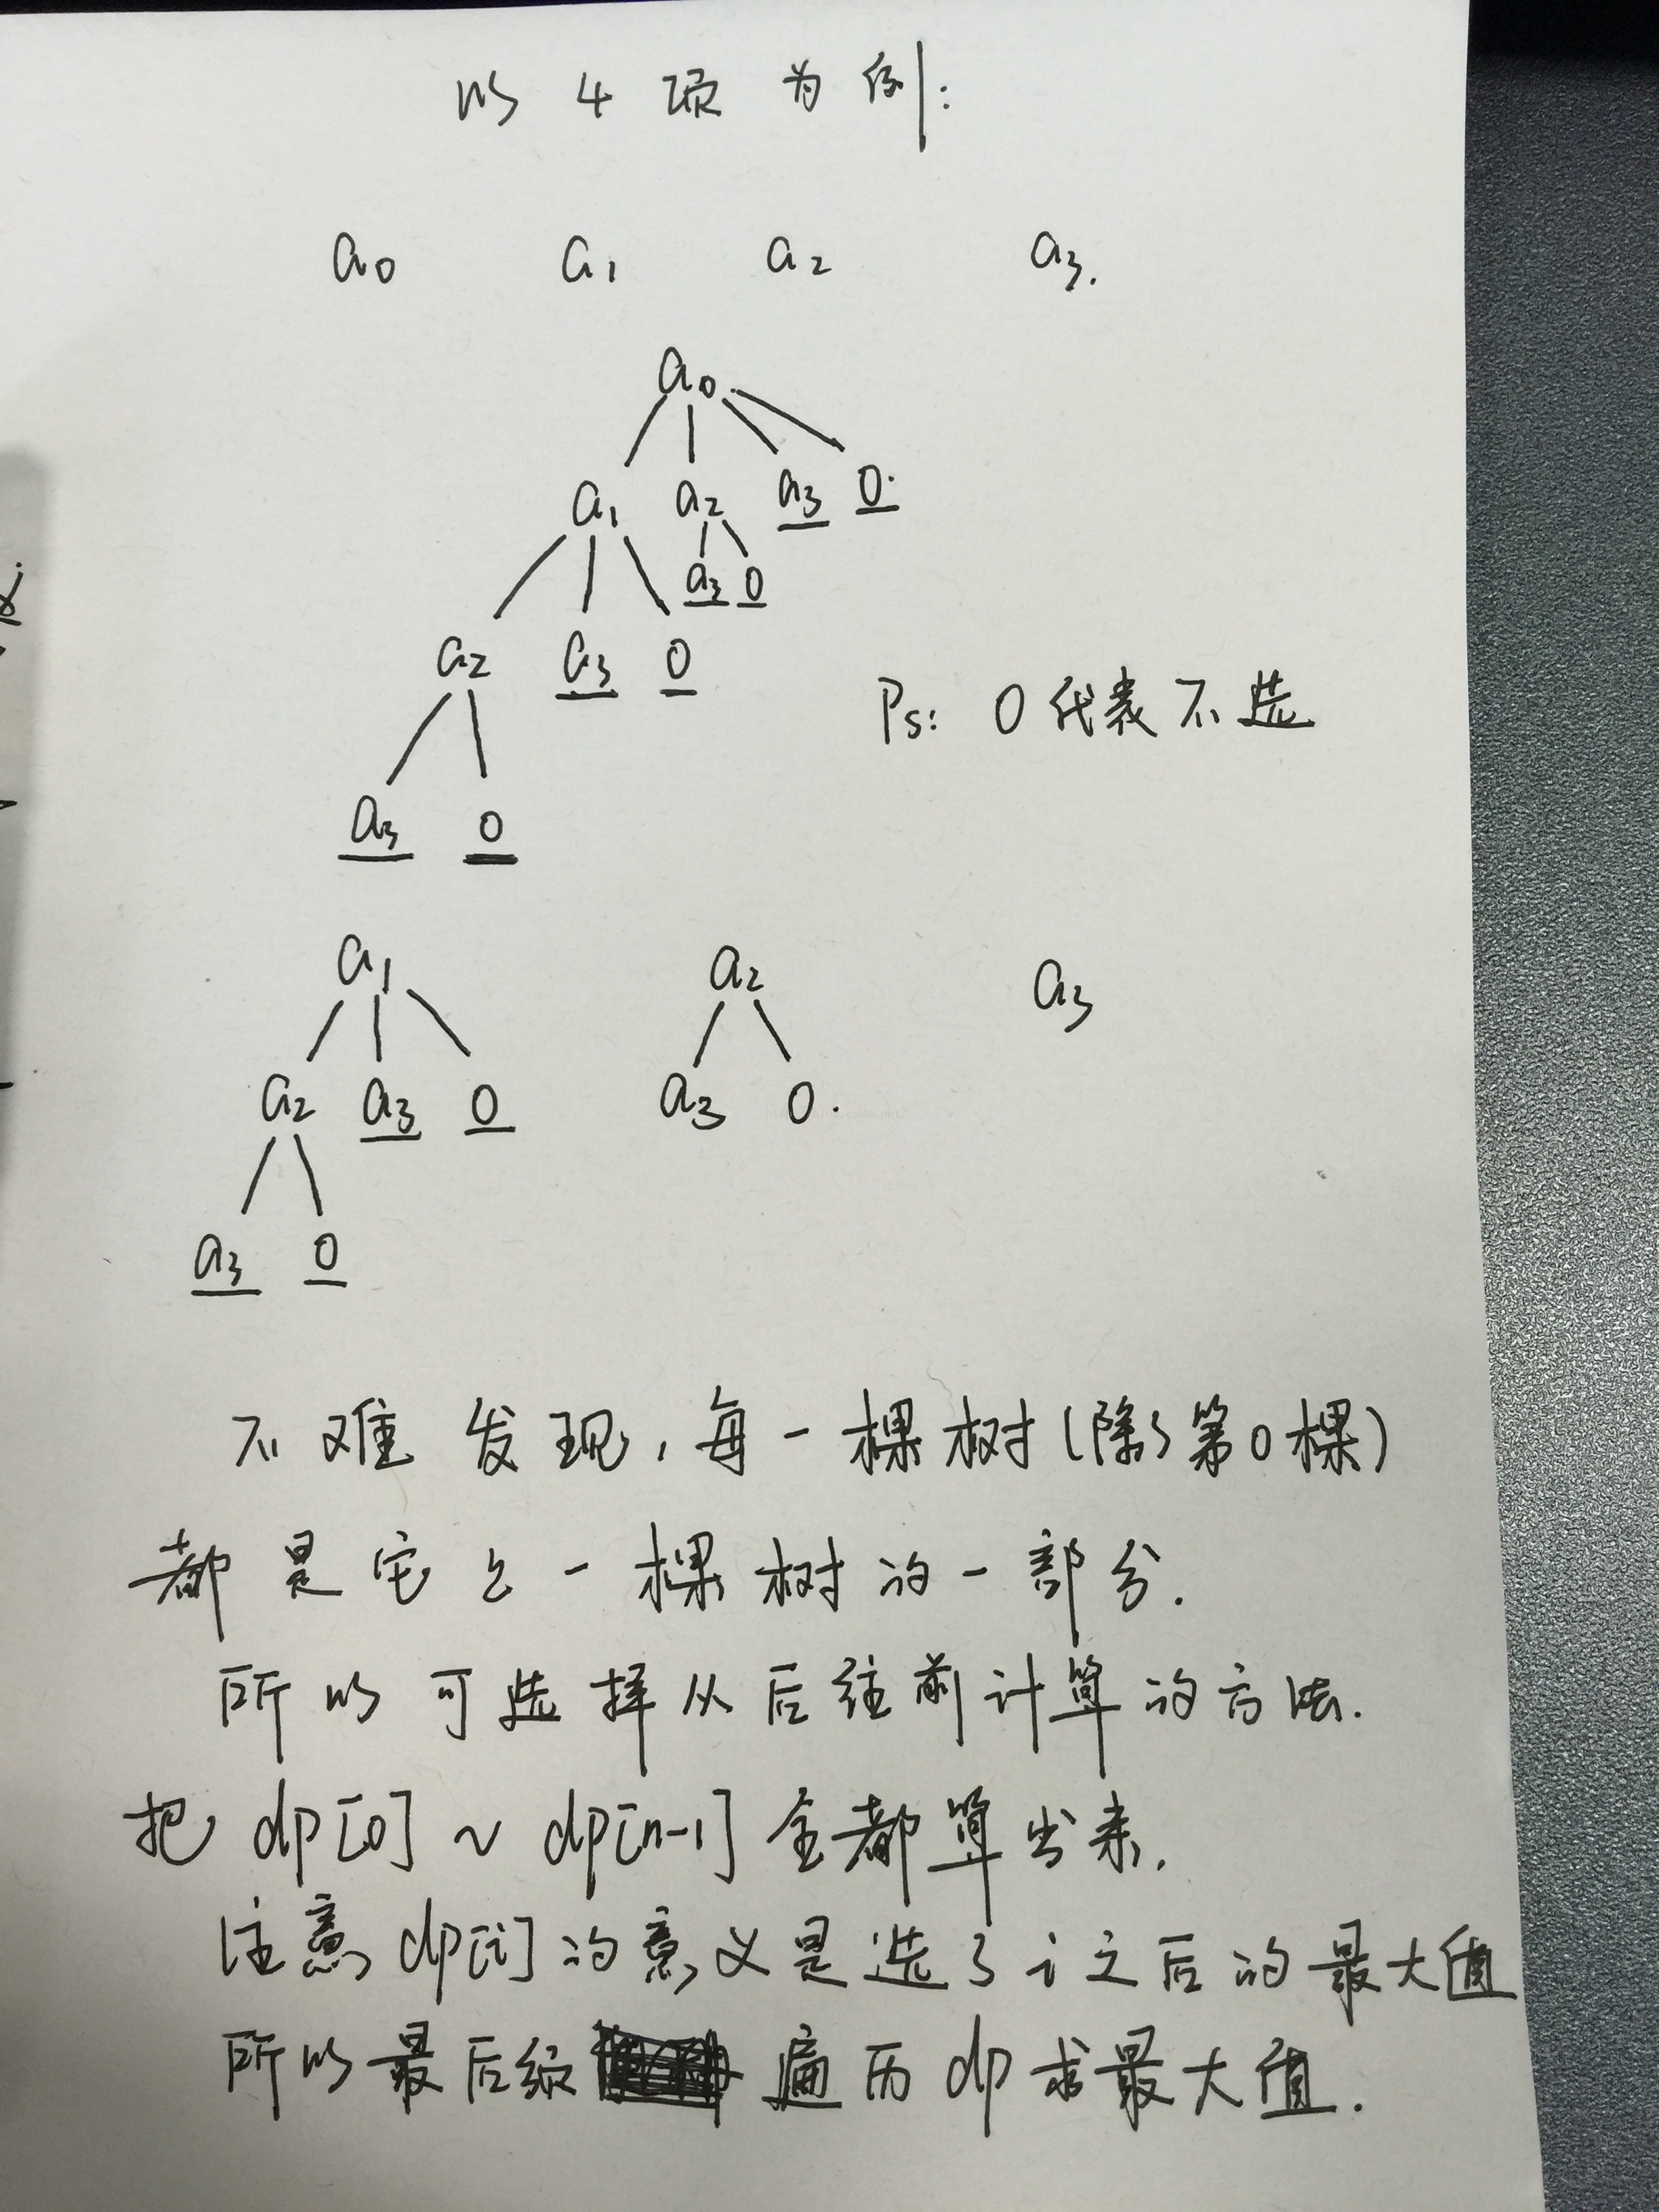 以 4 项 为 例:
a0 a1 a2 a3.
a0
a1 a2 a3 0.
a3 0
a2 a3 0
Ps: 0 代表不选
a3 0
a1 a2 a3
a2 a3 0 a3 0.
a3 0
不难 发现, 每一棵树(除了第0棵)
都是它上一棵树的一部分.
所以可选择从后往前计算的方法.
把 dp[0] ~ dp[n-1] 全都算出来.
注意 dp[i] 的意义是选了 i 之后的最大值
所以最后 遍历 dp 求最大值.